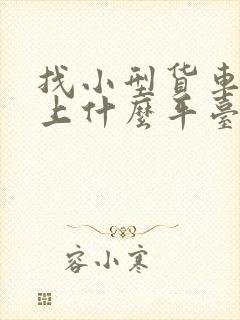 找小型货車
上什麼平臺
容小寒